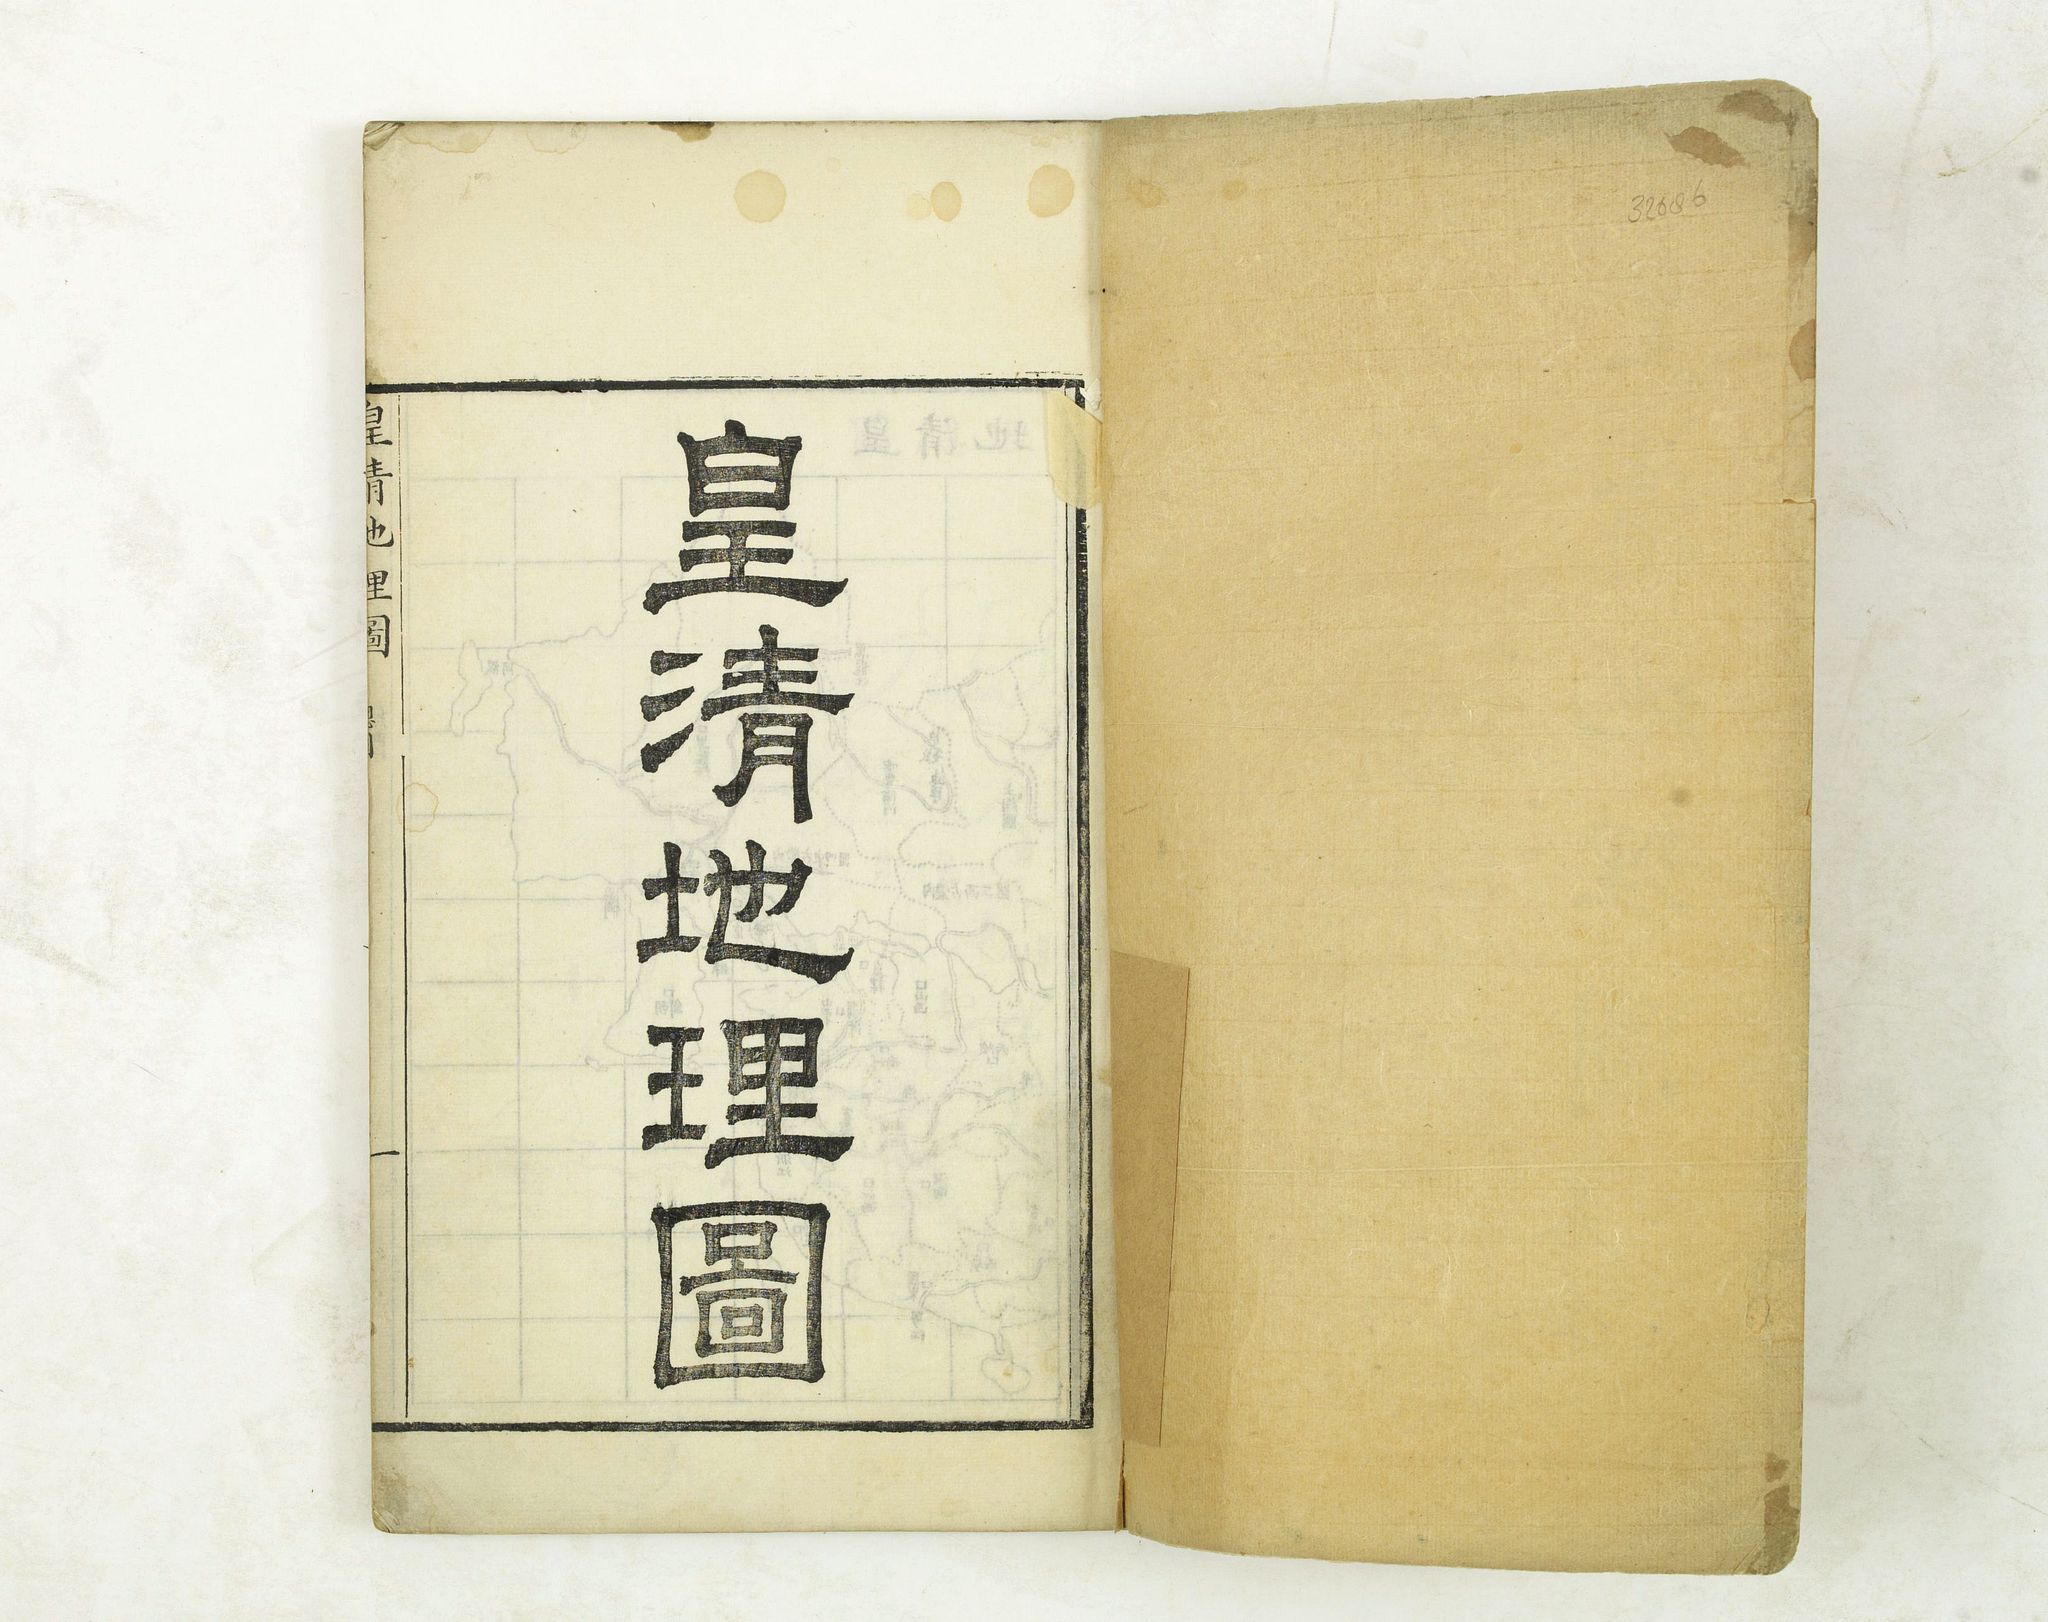 32086
皇清地理圖
皇清地理圖
一
皇清地